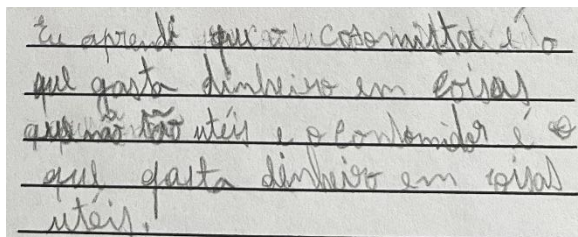 Eu aprendi que o cosomista é o
que gasta dinheiro em coisas
que não são utéis e o consomidor é o
que gasta dinheiro em coisas
utéis.